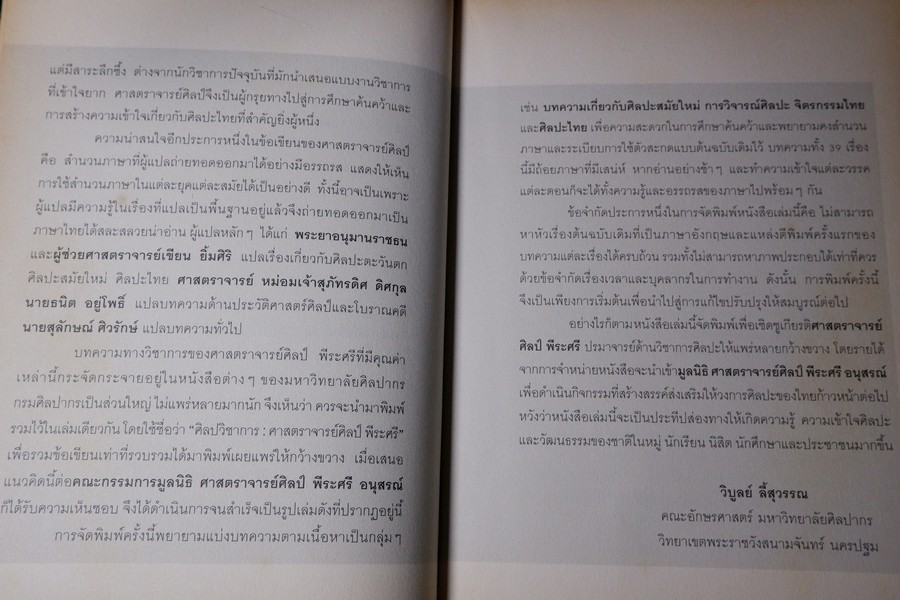 แต่มีสาระลึกซึ้ง ต่างจากนักวิชาการปัจจุบันที่มักนำเสนอแบบงานวิชาการ
ที่เข้าใจยาก ศาสตราจารย์ศิลป์จึงเป็นผู้กรุยทางไปสู่การศึกษาค้นคว้าและ
การสร้างความเข้าใจเกี่ยวกับศิลปะไทยที่สำคัญยิ่งผู้หนึ่ง
ความน่าสนใจอีกประการหนึ่งในข้อเขียนของศาสตราจารย์ศิลป์
คือ สำนวนภาษาที่ผู้แปลถ่ายทอดออกมาได้อย่างมีอรรถรส แสดงให้เห็น
การใช้สำนวนภาษาในแต่ละยุคแต่ละสมัยได้เป็นอย่างดี ทั้งนี้อาจเป็นเพราะ
ผู้แปลมีความรู้ในเรื่องที่แปลเป็นพื้นฐานอยู่แล้วจึงถ่ายทอดออกมาเป็น
ภาษาไทยได้สละสลวยน่าอ่าน ผู้แปลหลักๆ ได้แก่ พระยาอนุมานราชธน
และผู้ช่วยศาสตราจารย์เขียน ยิ้มศิริ แปลเรื่องเกี่ยวกับศิลปะตะวันตก
ศิลปะสมัยใหม่ ศิลปะไทย ศาสตราจารย์ หม่อมเจ้าสุภัทรดิศ ดิศกุล
นายธนิต อยู่โพธิ์ แปลบทความด้านประวัติศาสตร์ศิลป์และโบราณคดี
นายสุลักษณ์ ศิวรักษ์ แปลบทความทั่วไป
บทความทางวิชาการของศาสตราจารย์ศิลป์ พีระศรีที่มีคุณค่า
เหล่านี้กระจัดกระจายอยู่ในหนังสือต่างๆ ของมหาวิทยาลัยศิลปากร
กรมศิลปากรเป็นส่วนใหญ่ ไม่แพร่หลายมากนัก จึงเห็นว่า ควรจะนำมาพิมพ์
รวมไว้ในเล่มเดียวกัน โดยใช้ชื่อว่า “ศิลปวิชาการ : ศาสตราจารย์ศิลป์ พีระศรี”
เพื่อรวมข้อเขียนเท่าที่รวบรวมได้มาพิมพ์เผยแพร่ให้กว้างขวาง เมื่อเสนอ
แนวคิดนี้ต่อคณะกรรมการมูลนิธิ ศาสตราจารย์ศิลป์ พีระศรี อนุสรณ์
ก็ได้รับความเห็นชอบ จึงได้ดำเนินการจนสำเร็จเป็นรูปเล่มดังที่ปรากฏอยู่นี้
การจัดพิมพ์ครั้งนี้พยายามแบ่งบทความตามเนื้อหาเป็นกลุ่มๆ
เช่น บทความเกี่ยวกับศิลปะสมัยใหม่ การวิจารณ์ศิลปะ จิตรกรรมไทย
และศิลปะไทย เพื่อความสะดวกในการศึกษาค้นคว้าและพยายามคงสำนวน
ภาษาและระเบียบการใช้ตัวสะกดแบบต้นฉบับเดิมไว้ บทความทั้ง 39 เรื่อง
นี้มีถ้อยภาษาที่มีเสน่ห์ หากอ่านอย่างช้าๆ และทำความเข้าใจแต่ละวรรค
แต่ละตอนก็จะได้ทั้งความรู้และอรรถรสของภาษาไปพร้อมๆ กัน
ข้อจำกัดประการหนึ่งในการจัดพิมพ์หนังสือเล่มนี้คือ ไม่สามารถ
หาหัวเรื่องต้นฉบับเดิมที่เป็นภาษาอังกฤษและแหล่งตีพิมพ์ครั้งแรกของ
บทความแต่ละเรื่องได้ครบถ้วน รวมทั้งไม่สามารถหาภาพประกอบได้เท่าที่ควร
ด้วยข้อจำกัดเรื่องเวลาและบุคลากรในการทำงาน ดังนั้น การพิมพ์ครั้งนี้
จึงเป็นเพียงการเริ่มต้นเพื่อนำไปสู่การแก้ไขปรับปรุงให้สมบูรณ์ต่อไป
อย่างไรก็ตามหนังสือเล่มนี้จัดพิมพ์เพื่อเชิดชูเกียรติศาสตราจารย์
ศิลป์ พีระศรี ปรมาจารย์ด้านวิชาการศิลปะให้แพร่หลายกว้างขวาง โดยรายได้
จากการจำหน่ายหนังสือจะนำเข้ามูลนิธิ ศาสตราจารย์ศิลป์ พีระศรี อนุสรณ์
เพื่อดำเนินกิจกรรมที่สร้างสรรค์ส่งเสริมให้วงการศิลปะของไทยก้าวหน้าต่อไป
หวังว่าหนังสือเล่มนี้จะเป็นประทีปส่องทางให้เกิดความรู้ ความเข้าใจศิลปะ
และวัฒนธรรมของชาติในหมู่ นักเรียน นิสิต นักศึกษาและประชาชนมากขึ้น
วิบูลย์ ลี้สุวรรณ
คณะอักษรศาสตร์ มหาวิทยาลัยศิลปากร
วิทยาเขตพระราชวังสนามจันทร์ นครปฐม